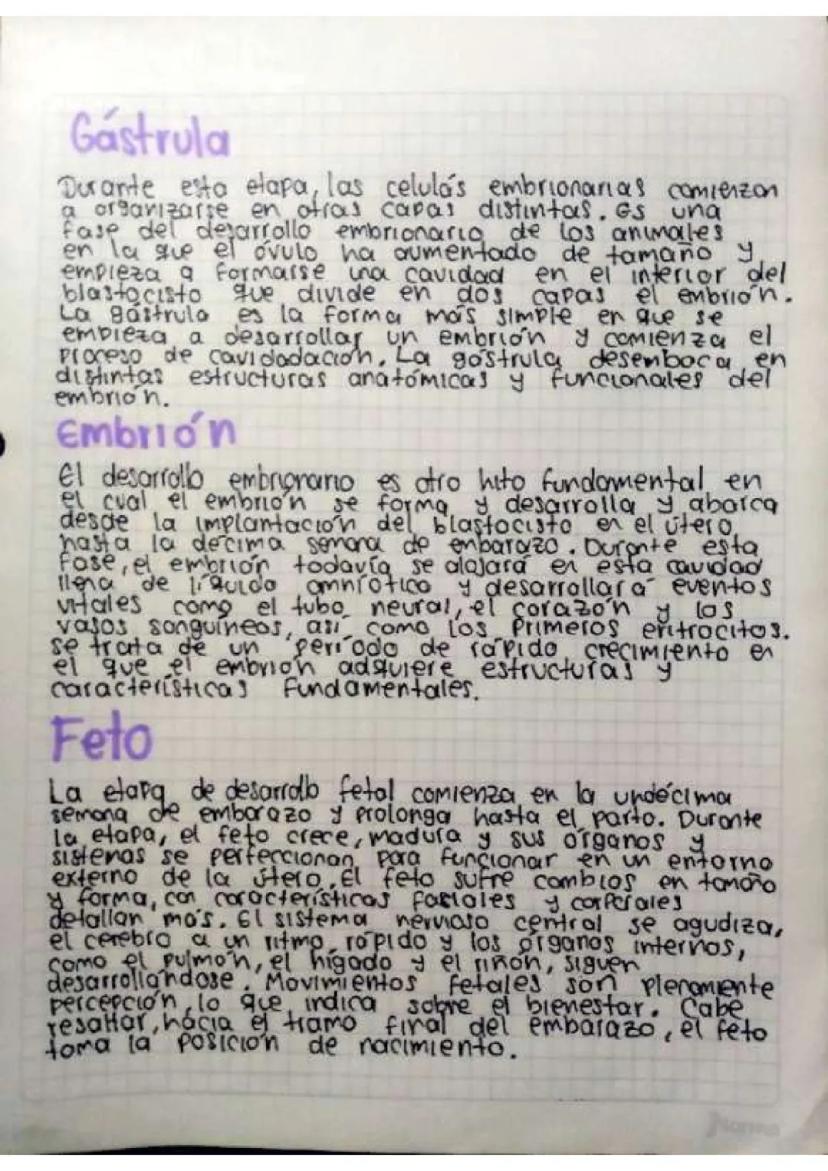 Gástrula
Durante esta etapa, las celulás embrionarias comienzan
a organizarse en otras capas distintas. Es una
fase del desarrollo embrionario de los animales
en la que el óvulo ha aumentado de tamaño y
empieza a formarse una cavidad en el interior del
blastocisto que divide en dos capas el embrión.
La gástrula es la forma más simple en que se
empieza a desarrollar un embrión y comienza el
proceso de cavidadación. La gástrula desemboca en
distintas estructuras anatómicas y funcionales del
embrión.
Embrión
El desarrollo embrionario es otro hito fundamental en
el cual el embrión se forma y desarrolla y abarca
desde la implantación del blastocisto en el útero
hasta la décima semana de embarazo. Durante esta
fase, el embrión todavía se alojará en esta cavidad
llena de líquido amniótico y desarrollará eventos
vitales como el tubo neural, el corazón y los
vasos sanguíneos, así como los primeros eritrocitos.
se trata de un período de rápido crecimiento en
el que el embrión adquiere estructuras y
características fundamentales.
Feto
La etapa de desarrollo fetal comienza en la undécima
semana de embarazo y prolonga hasta el parto. Durante
la etapa, el feto crece, madura y sus órganos y
sistemas se perfeccionan para funcionar en un entorno
externo de la útero. El feto sufre cambios en tamaño
y forma, con características faciales y corporales
detallan más. El sistema nervioso central se agudiza,
el cerebro a un ritmo rápido y los órganos internos,
como el pulmón, el hígado y el riñón, siguen
desarrollándose. Movimientos fetales son plenamente
percepción, lo que indica sobre el bienestar. Cabe
resaltar, hacia el tramo final del embarazo, el feto
toma la posición de nacimiento.
Norma